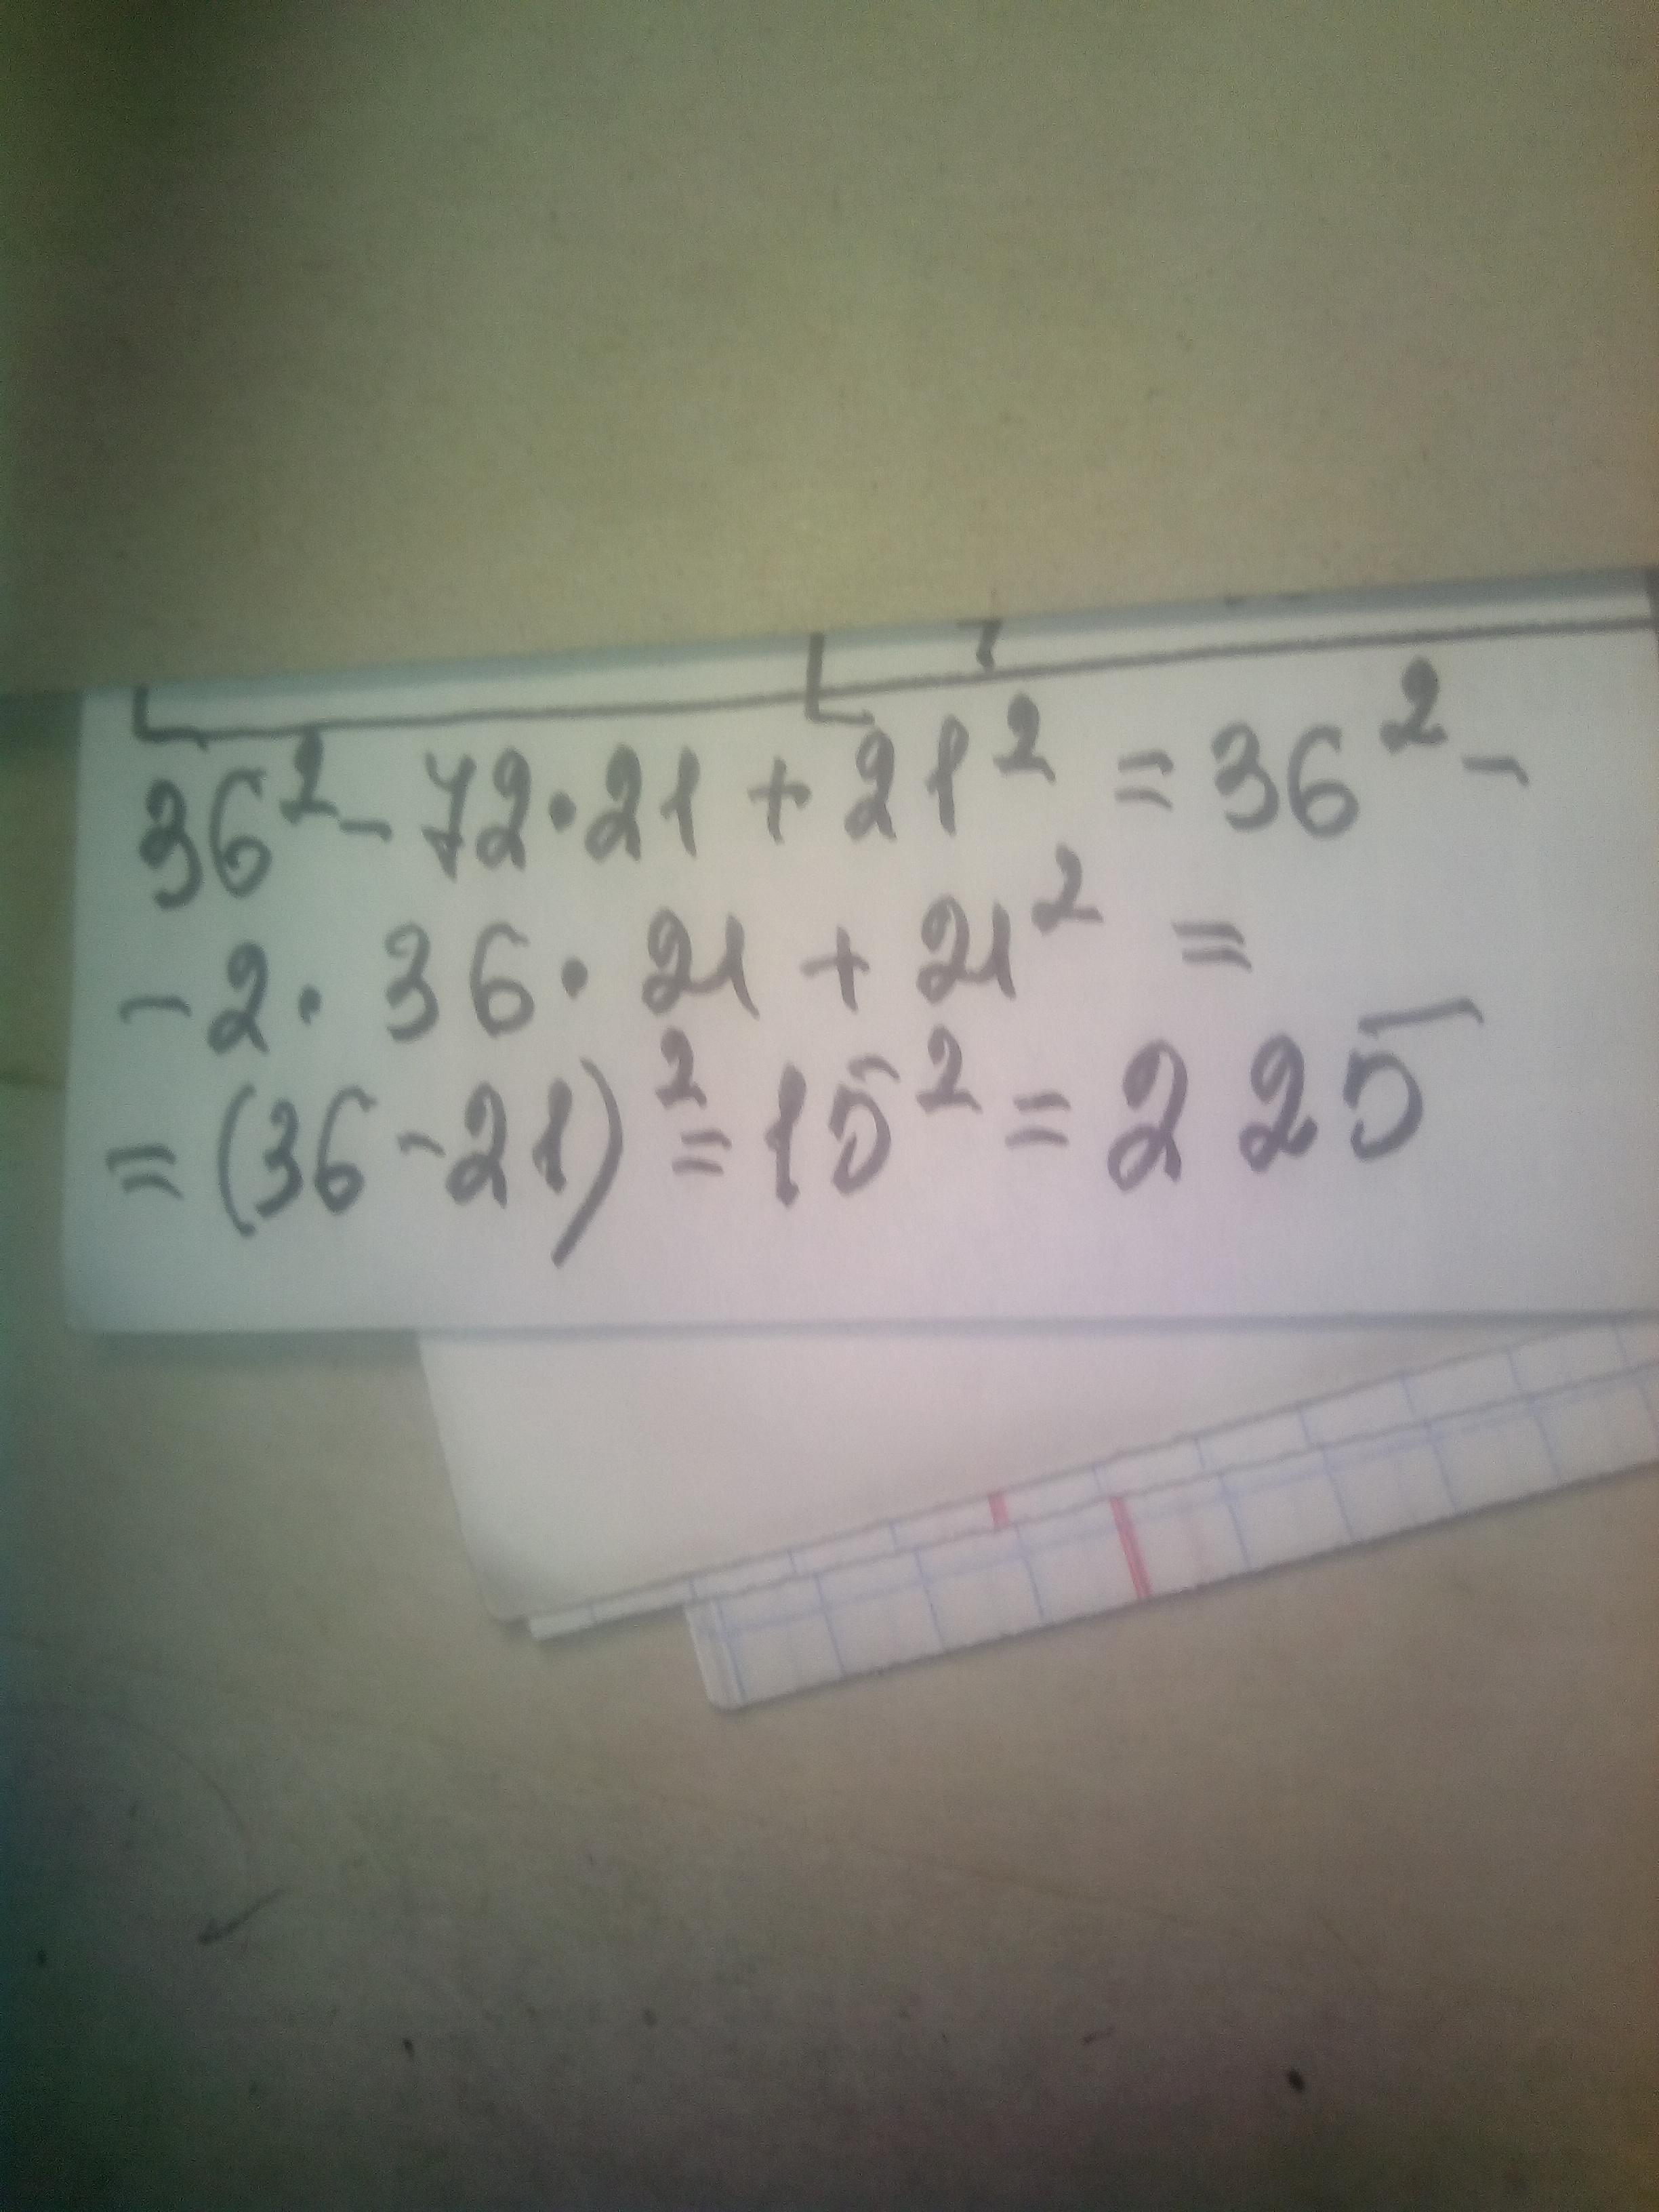 36² - 72 · 21 + 21² = 36² -
- 2 · 36 · 21 + 21² =
= (36 - 21)² = 15² = 225